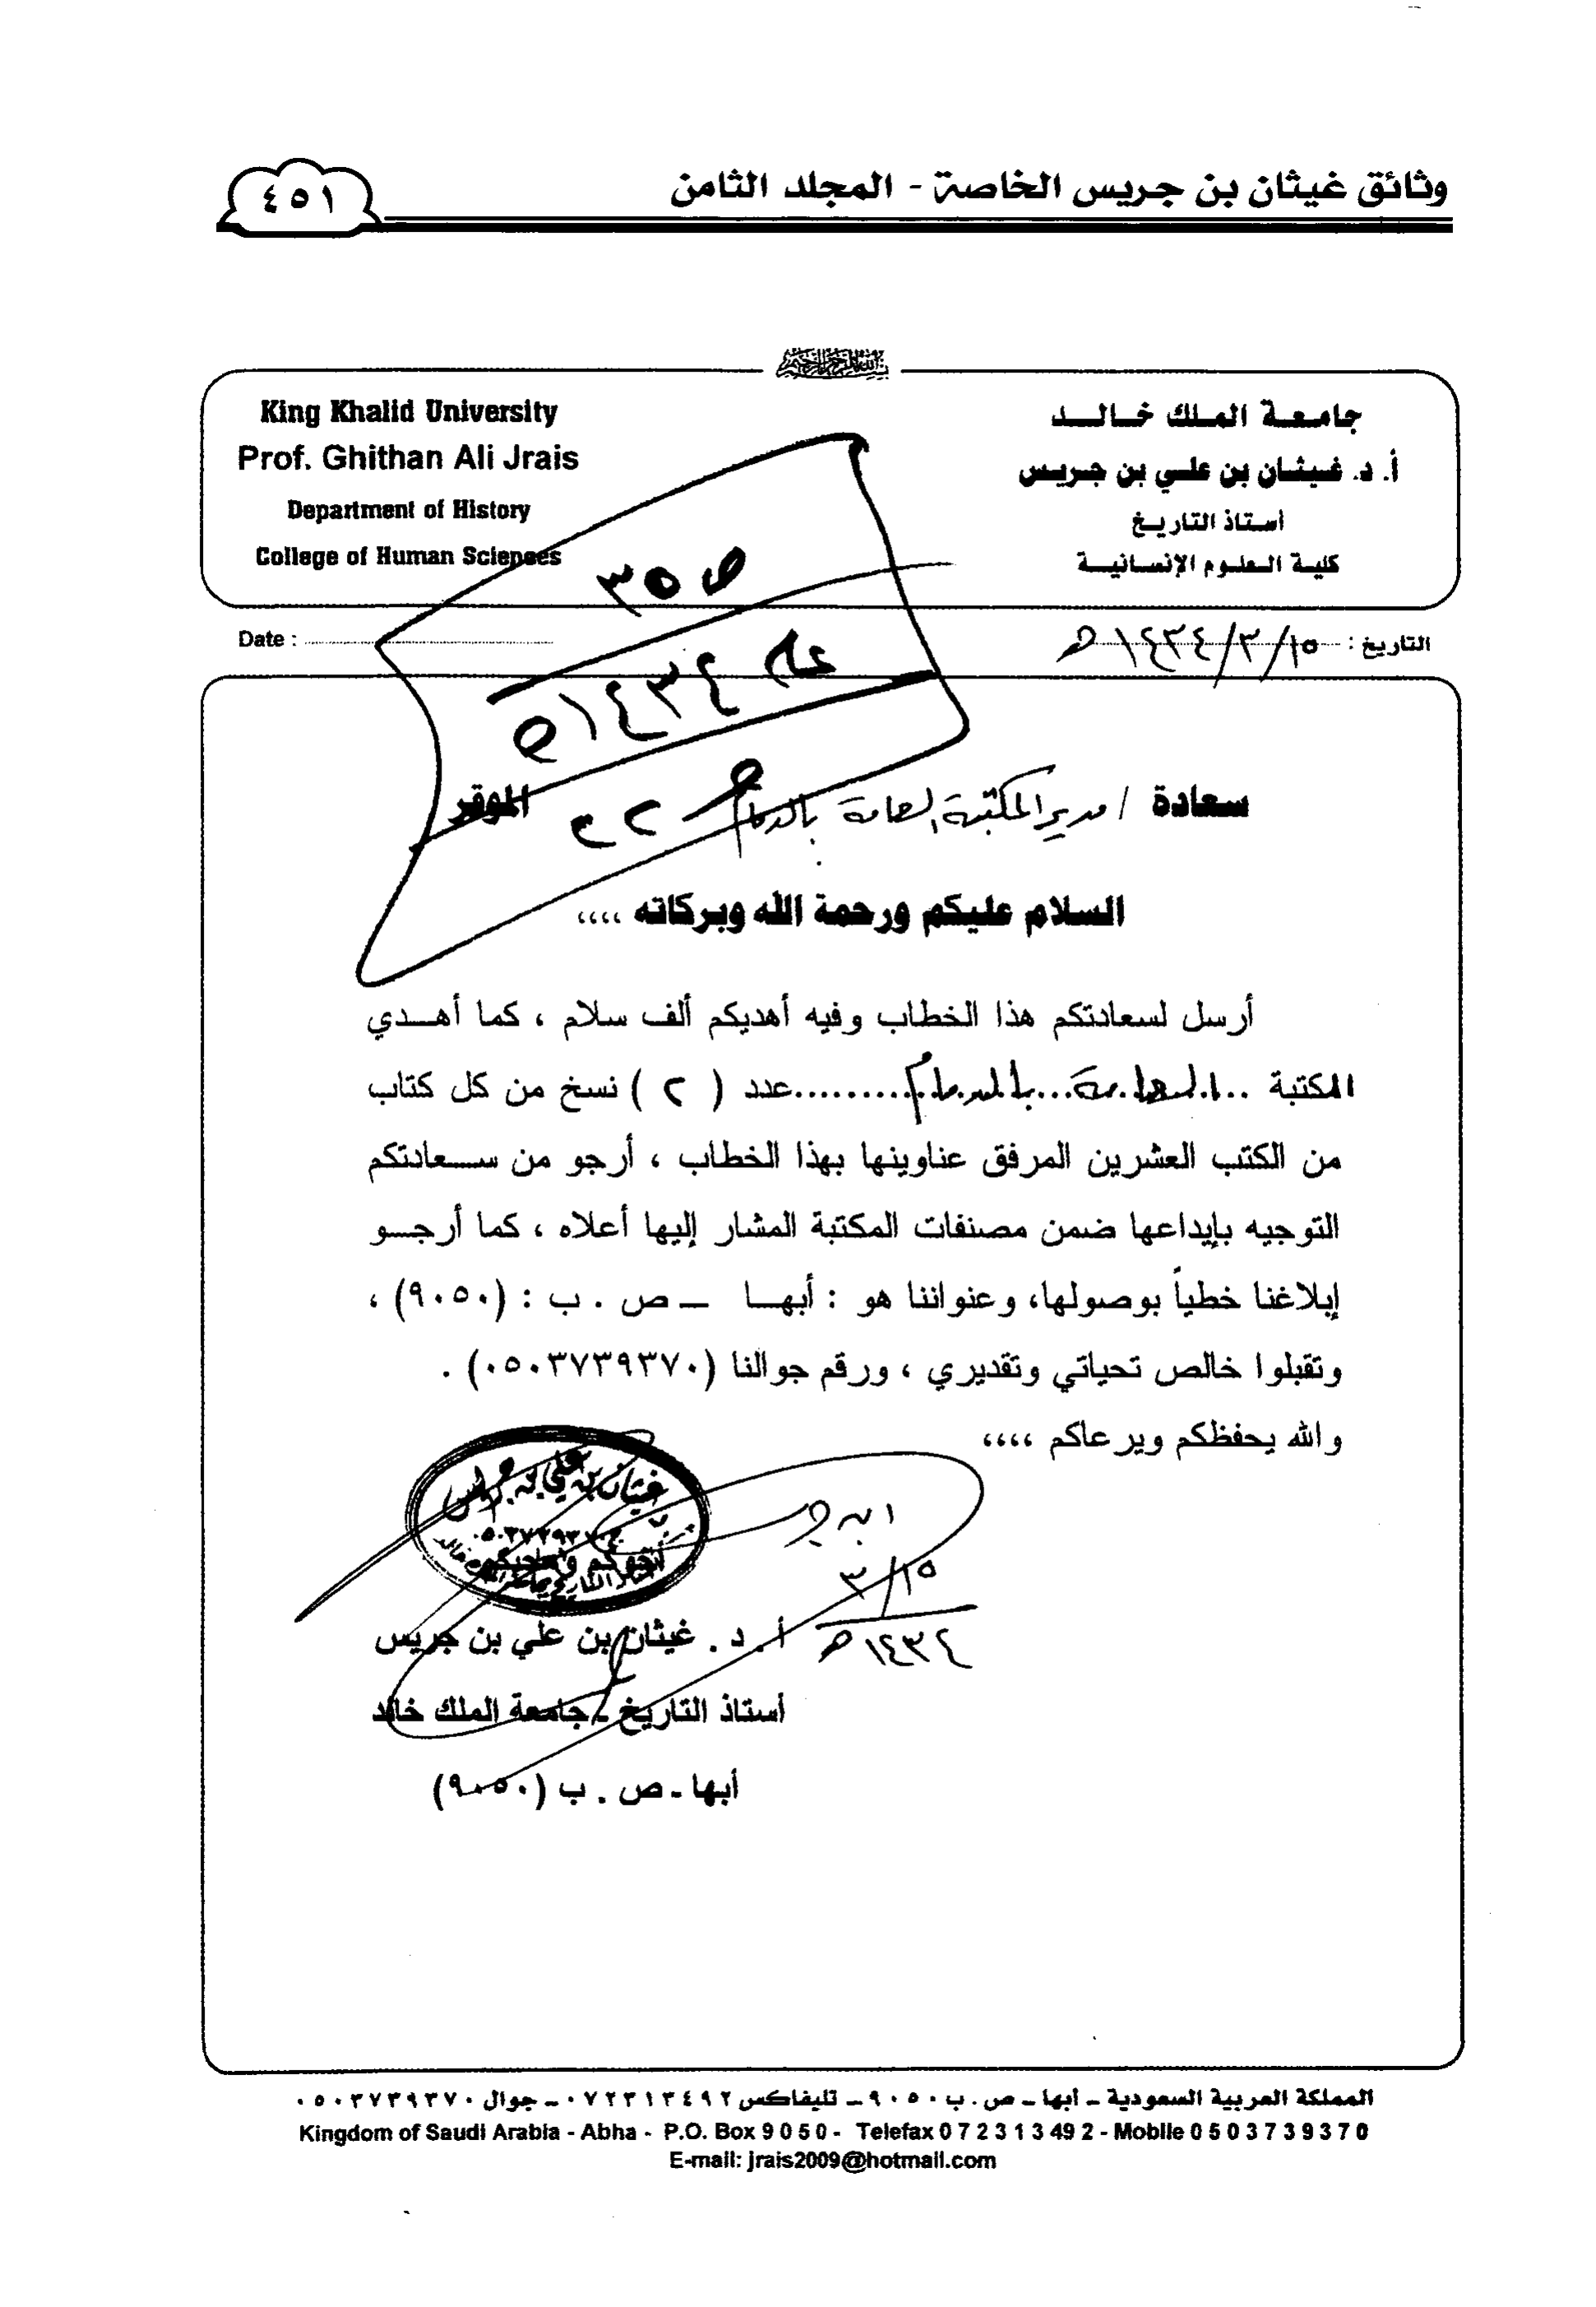 وثائق غيثان بن جريس الخاصة - المجلد الثامن
٤٥١
جامعة الملك خالد
أ. د. غيثان بن علي بن جريس
أستاذ التاريخ
كلية العلوم الإنسانية
King Khalid University
Prof. Ghithan Ali Jrais
Department of History
College of Human Sciences
التاريخ : ١٥/٣/١٤٣٤هـ
Date :
ص ٣٥
عام ١٤٣٤هـ
سعادة / مدير المكتبة العامة بالدمام الموقر
السلام عليكم ورحمة الله وبركاته ،،،،
أرسل لسعادتكم هذا الخطاب وفيه أهديكم ألف سلام ، كما أهدي
المكتبة ..العامة..بالدمام.........عدد ( ٢ ) نسخ من كل كتاب
من الكتب العشرين المرفق عناوينها بهذا الخطاب ، أرجو من سعادتكم
التوجيه بإيداعها ضمن مصنفات المكتبة المشار إليها أعلاه ، كما أرجو
إبلاغنا خطياً بوصولها، وعنواننا هو : أبها – ص . ب : (٩٠٥٠) ،
وتقبلوا خالص تحياتي وتقديري ، ورقم جوالنا (٠٥٠٣٧٣٩٣٧٠) .
والله يحفظكم ويرعاكم ،،،،
غيثان بن علي بن جريس
أخوكم ومحبكم
١٥/٣
١٤٣٤هـ
أ. د . غيثان بن علي بن جريس
أستاذ التاريخ - جامعة الملك خالد
أبها - ص . ب (٩٠٥٠)
المملكة العربية السعودية – أبها – ص . ب ٩٠٥٠ – تليفاكس ٠٧٢٣١٣٤٩٢ – جوال ٠٥٠٣٧٣٩٣٧٠
Kingdom of Saudi Arabia - Abha - P.O. Box 9 0 5 0 - Telefax 0 7 2 3 1 3 49 2 - Mobile 0 5 0 3 7 3 9 3 7 0
E-mail: jrais2009@hotmail.com